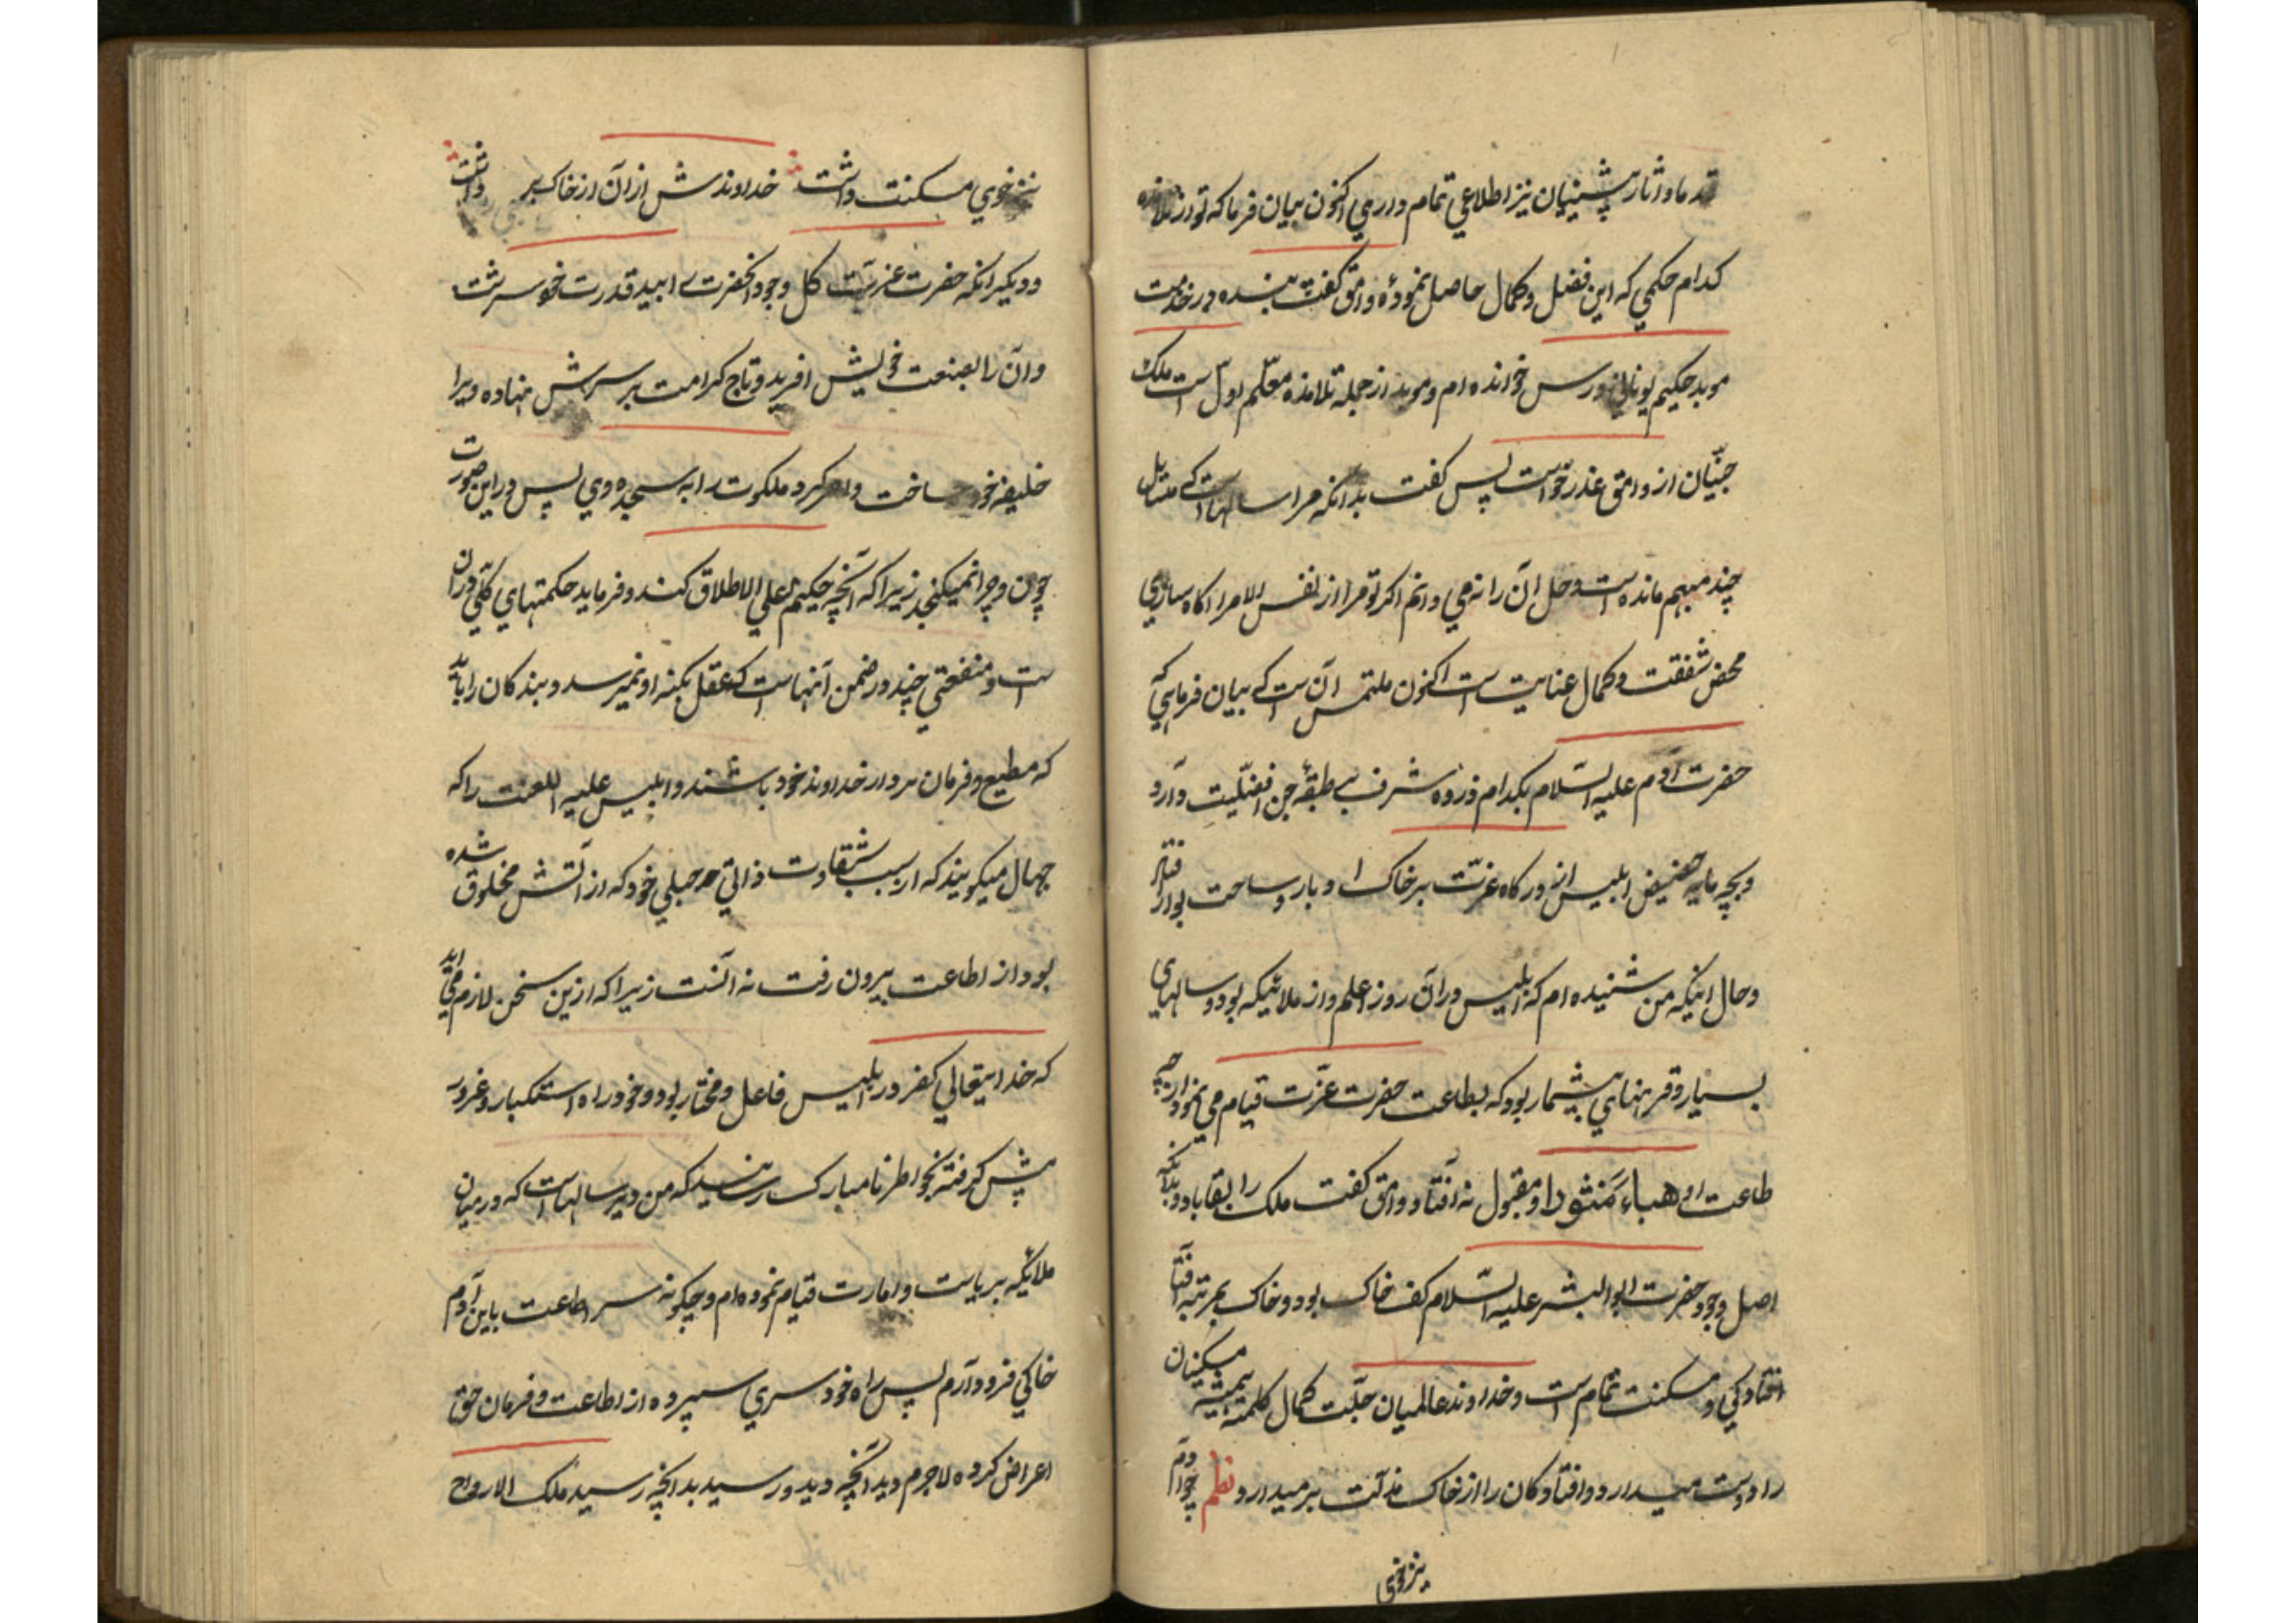 قدما و اثار پیشینیان نیز اطلاعی تمام داری اکنون بیان فرما که تو از تلامذه
کدام حکمی که این فضل و کمال حاصل نمودهٔ وامق گفت بنده در خدمت
موبد حکیم یونانی درس خوانده ام و موبد از جمله تلامذه معلّم اول است ملک
جنّیان از وامق عذر خواست پس گفت بدانکه مرا سالهاست که مسایل
چند مبهم مانده است و حل آن را نه می دانم اکر تو مرا از نفس الامر اکاه سازی
محض شفقت و کمال عنایت است اکنون ملتمس آن است که بیان فرمایی که
حضرت آدم علیه السّلام بکدام ذروه شرف بے طبقهٔ جن افضلّیت دارد
و بچه مایه حضیض ابلیس از درکاه عزّت بر خاک ادبار و ساحت بوار افتاد
و حال اینکه من شنیده ام که ابلیس در آن روز اعلم و از ملائیکه بود و سالهای
بسیار و قرنهای بیشمار بود که بطاعت حضرت عزّت قیام می نمود از چه
طاعت او هباء منثورا و مقبول نه افتاد وامق گفت ملک را بقا باد بدانکه
اصل وجود حضرت ابوالبشر علیه السّلام کف خاک بود و خاک بمرتبه افتا
افتادکی و مسکنت تمام است و خداوند عالمیان جلّت کمال کلمته همیشه مسکینان
را دوست میدارد و افتادکان را از خاک مذلت بر میدارد نظم چو آدم
نیز خوی
نیز خوی مسکنت داشت خداوندش از آن از خاک بر داشت
و دیکر انکه حضرت عزّت کل وجود انحضرت را بید قدرت خود سرشت
و آن را بصنعت خویش افرید و تاج کرامت بر سرش نهاده ویرا
خلیفه خود ساخت و امر کرد ملکوت را به سجده وی پس در این صورت
چون و چرا نمیکنجد زیرا که آنچه حکیم علی الاطلاق کند و فرماید حکمتهای کلّی در ان
است و منفعتی چند در ضمن آنهاست که عقل بکنه او نمیرسد و بندکان را باید
که مطیع و فرمان بردار خداوند خود باشند و ابلیس علیه اللعنت را که
جهال میکویند که از سبب شقاوت ذاتی و جبلی خود که از آتش مخلوق شده
بود از اطاعت بیرون رفت نه آنست زیرا که ازین سخن لازم می آید
که خدایتعالی کفر در ابلیس فاعل و مختار بود و خود راه استکبار و غرور
پیش کرفته بخواطر نامبارک رسانید که من دیر سالهاست که در میان
ملائیکه بریاست و امارت قیام نموده ام و چکونه سر اطاعت باین آدم
خاکی فرود آرم پس راه خود سری سپرده از اطاعت و فرمان حق
اعراض کرده لاجرم دید آنچه دید و رسید بدانچه رسید ملک الارواح